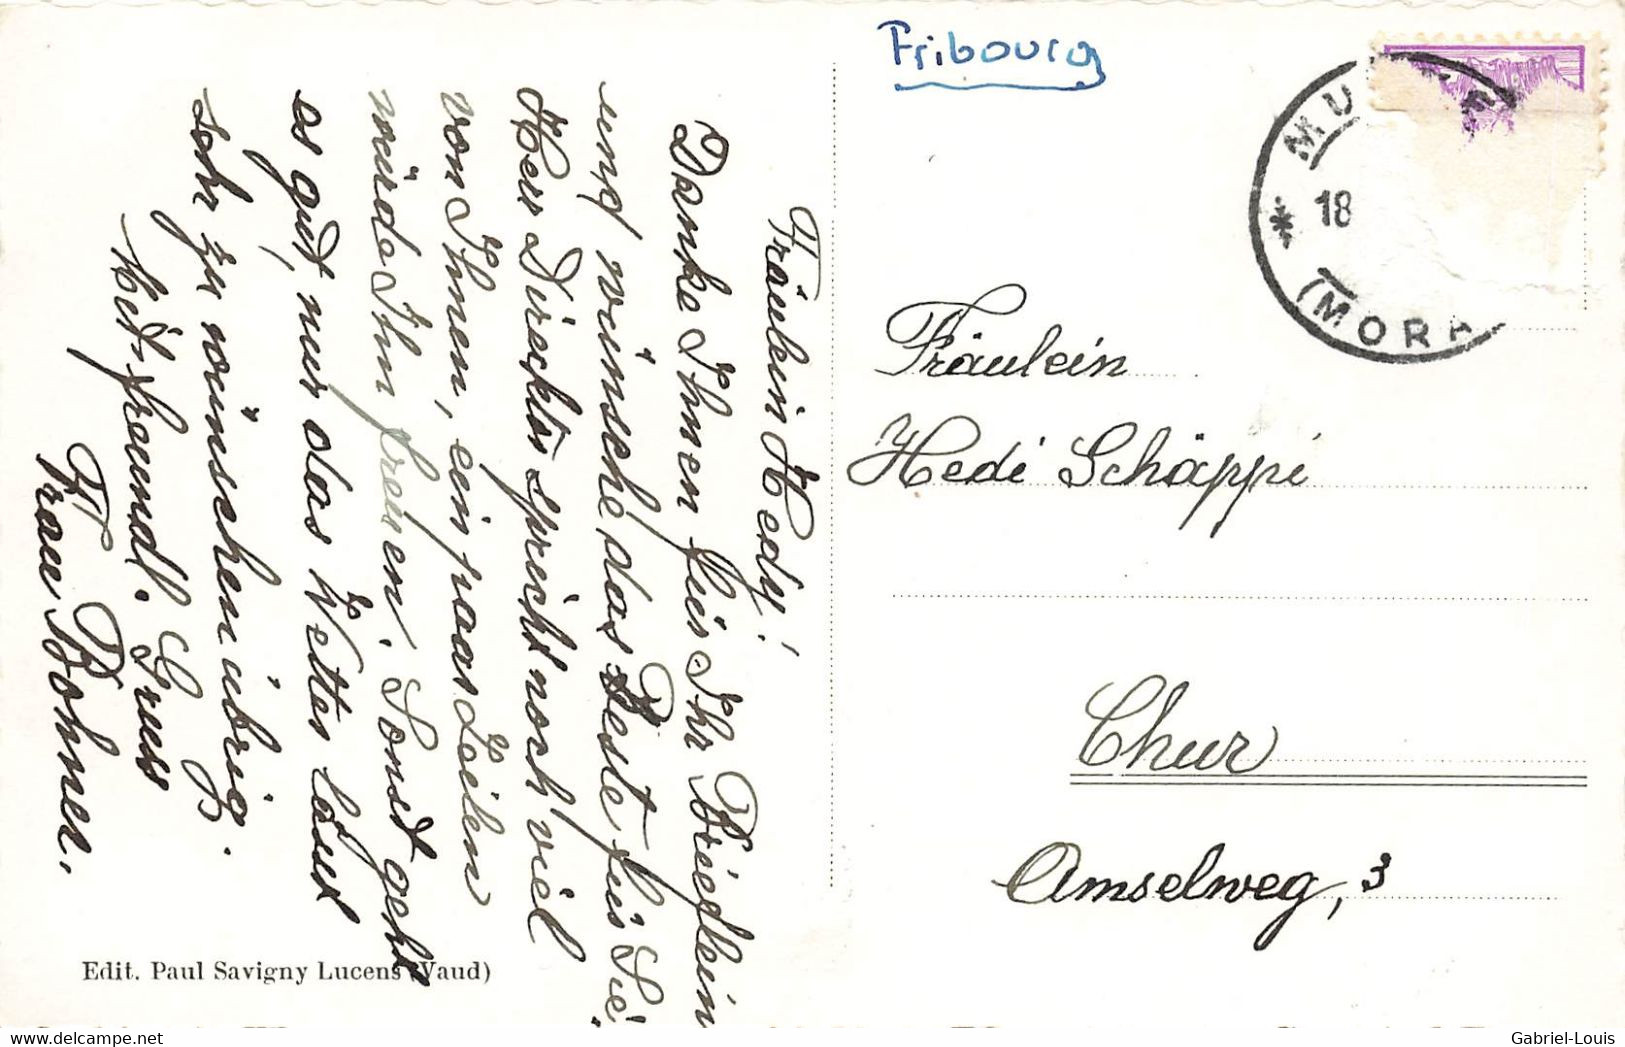 Fräulein Hedy!
Danke Ihnen für Ihr Brieflein
und wünsche das Beste für Sie,
Herr Direcktor spricht noch viel
von Ihnen, ein paar Zeilen
würde Ihm freuen. Sonst geht
es gut, nur das Wetter lässt
sehr zu wünschen übrig.
Mit freundl. Gruss
Frau Bohner.
Edit. Paul Savigny Lucens (Vaud)
Fribourg
MU
18
(MORA
Fräulein
Hedi Schäppi
Chur
Amselweg, 3
Gabriel-Louis
www.delcampe.net